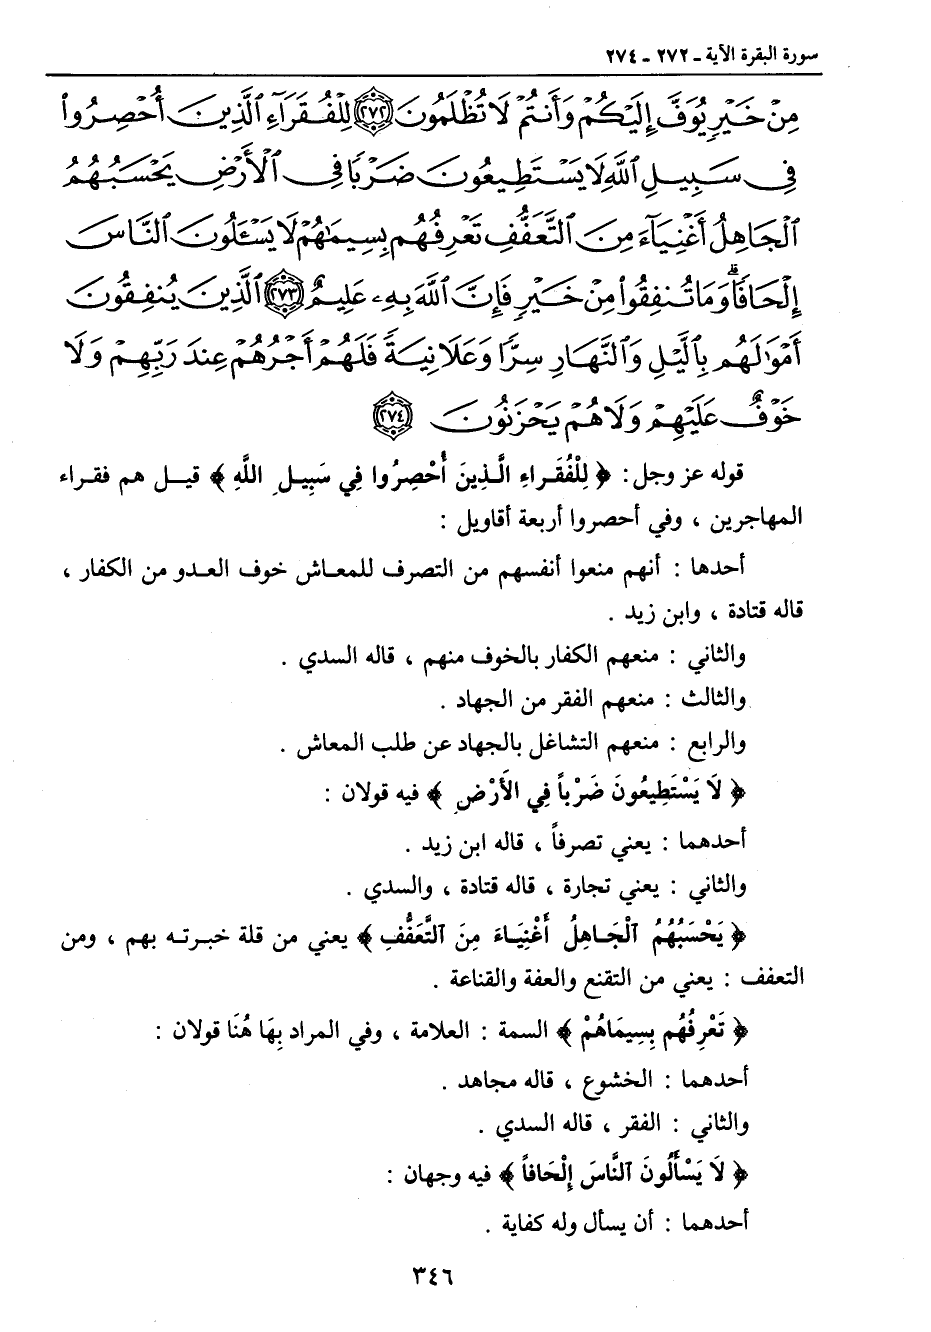 سورة البقرة الآية ـ ٢٧٢ ـ ٢٧٤
مِنْ خَيْرٍ يُوَفَّ إِلَيْكُمْ وَأَنتُمْ لَا تُظْلَمُونَ ٢٧٢ لِلْفُقَرَآءِ ٱلَّذِينَ أُحْصِرُوا۟
فِى سَبِيلِ ٱللَّهِ لَا يَسْتَطِيعُونَ ضَرْبًا فِى ٱلْأَرْضِ يَحْسَبُهُمُ
ٱلْجَاهِلُ أَغْنِيَآءَ مِنَ ٱلتَّعَفُّفِ تَعْرِفُهُم بِسِيمَٰهُمْ لَا يَسْـَٔلُونَ ٱلنَّاسَ
إِلْحَافًا ۗ وَمَا تُنفِقُوا۟ مِنْ خَيْرٍ فَإِنَّ ٱللَّهَ بِهِۦ عَلِيمٌ ٢٧٣ ٱلَّذِينَ يُنفِقُونَ
أَمْوَٰلَهُم بِٱلَّيْلِ وَٱلنَّهَارِ سِرًّا وَعَلَانِيَةً فَلَهُمْ أَجْرُهُمْ عِندَ رَبِّهِمْ وَلَا
خَوْفٌ عَلَيْهِمْ وَلَا هُمْ يَحْزَنُونَ ٢٧٤
قوله عز وجل : ﴿ لِلْفُقَـراءِ الَّـذِينَ أُحْصِرُوا فِي سَبِيـلِ اللَّهِ ﴾ قيـل هم فقـراء
المهاجرين ، وفي أحصروا أربعة أقاويل :
أحدها : أنهم منعوا أنفسهم من التصرف للمعـاش خوف العـدو من الكفار ،
قاله قتادة ، وابن زيد .
والثاني : منعهم الكفار بالخوف منهم ، قاله السدي .
والثالث : منعهم الفقر من الجهاد .
والرابع : منعهم التشاغل بالجهاد عن طلب المعاش .
﴿ لَا يَسْتَطِيعُونَ ضَرْباً فِي الأَرْضِ ﴾ فيه قولان :
أحدهما : يعني تصرفاً ، قاله ابن زيد .
والثاني : يعني تجارة ، قاله قتادة ، والسدي .
﴿ يَحْسَبُهُمُ ٱلْجَـاهِلُ أَغْنِيَـاءَ مِنَ ٱلتَّعَفُّفِ ﴾ يعني من قلة خبـرتـه بهم ، ومن
التعفف : يعني من التقنع والعفة والقناعة .
﴿ تَعْرِفُهُم بِسِيمَاهُمْ ﴾ السمة : العلامة ، وفي المراد بِهَا هُنَا قولان :
أحدهما : الخشوع ، قاله مجاهد .
والثاني : الفقر ، قاله السدي .
﴿ لَا يَسْأَلُونَ ٱلنَّاسَ إِلْحَافاً ﴾ فيه وجهان :
أحدهما : أن يسأل وله كفاية .
٣٤٦